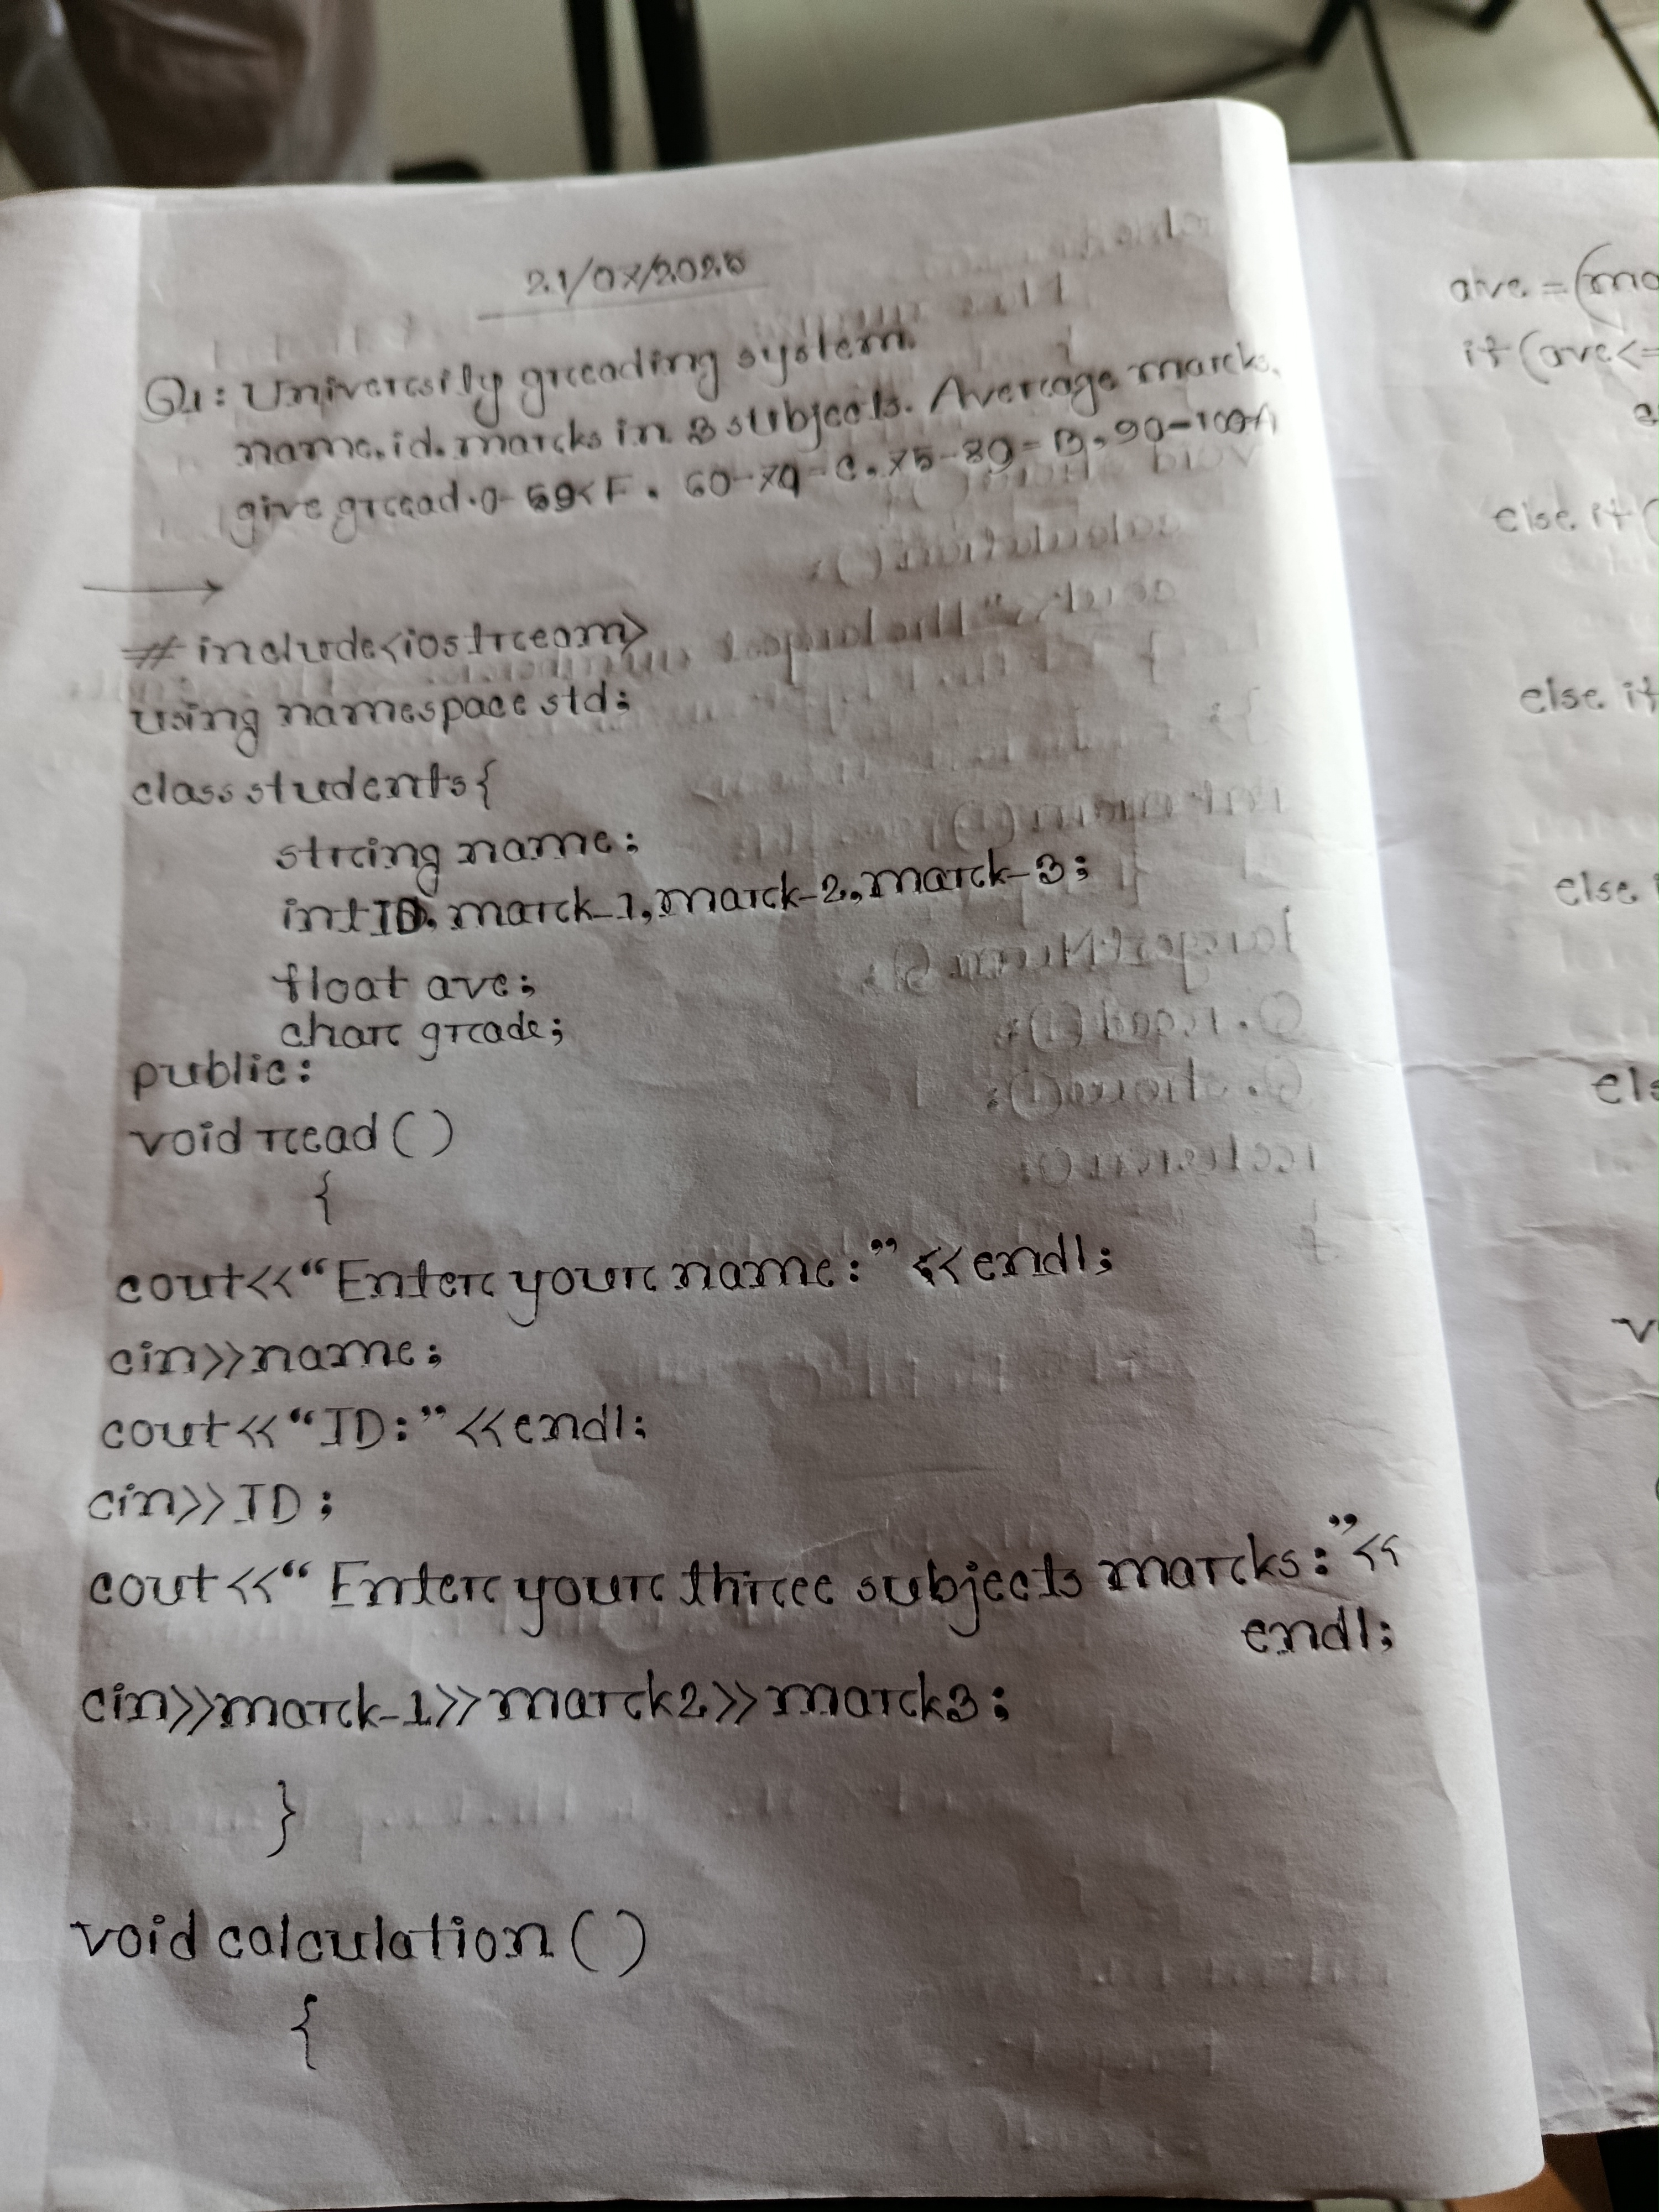 21/07/2025
Q1: University greading system.
name, id, marcks in 3 subjects. Average marcks,
give gread. 0-59<F, 60-74-C, 75-89=B, 90-100A
→
#include<iostream>
using namespace std;
class students{
string name;
int ID, mark-1, mark-2, mark-3;
float ave;
char grade;
public:
void read()
{
cout<<"Enter your name:"<<endl;
cin>>name;
cout<<"ID:"<<endl;
cin>>ID;
cout<<"Enter your three subjects marks:"<<
endl;
cin>>mark-1>>mark2>>mark3;
}
void calculation()
{
ave=(ma
if(ave<=
else if(
else if
else i
els